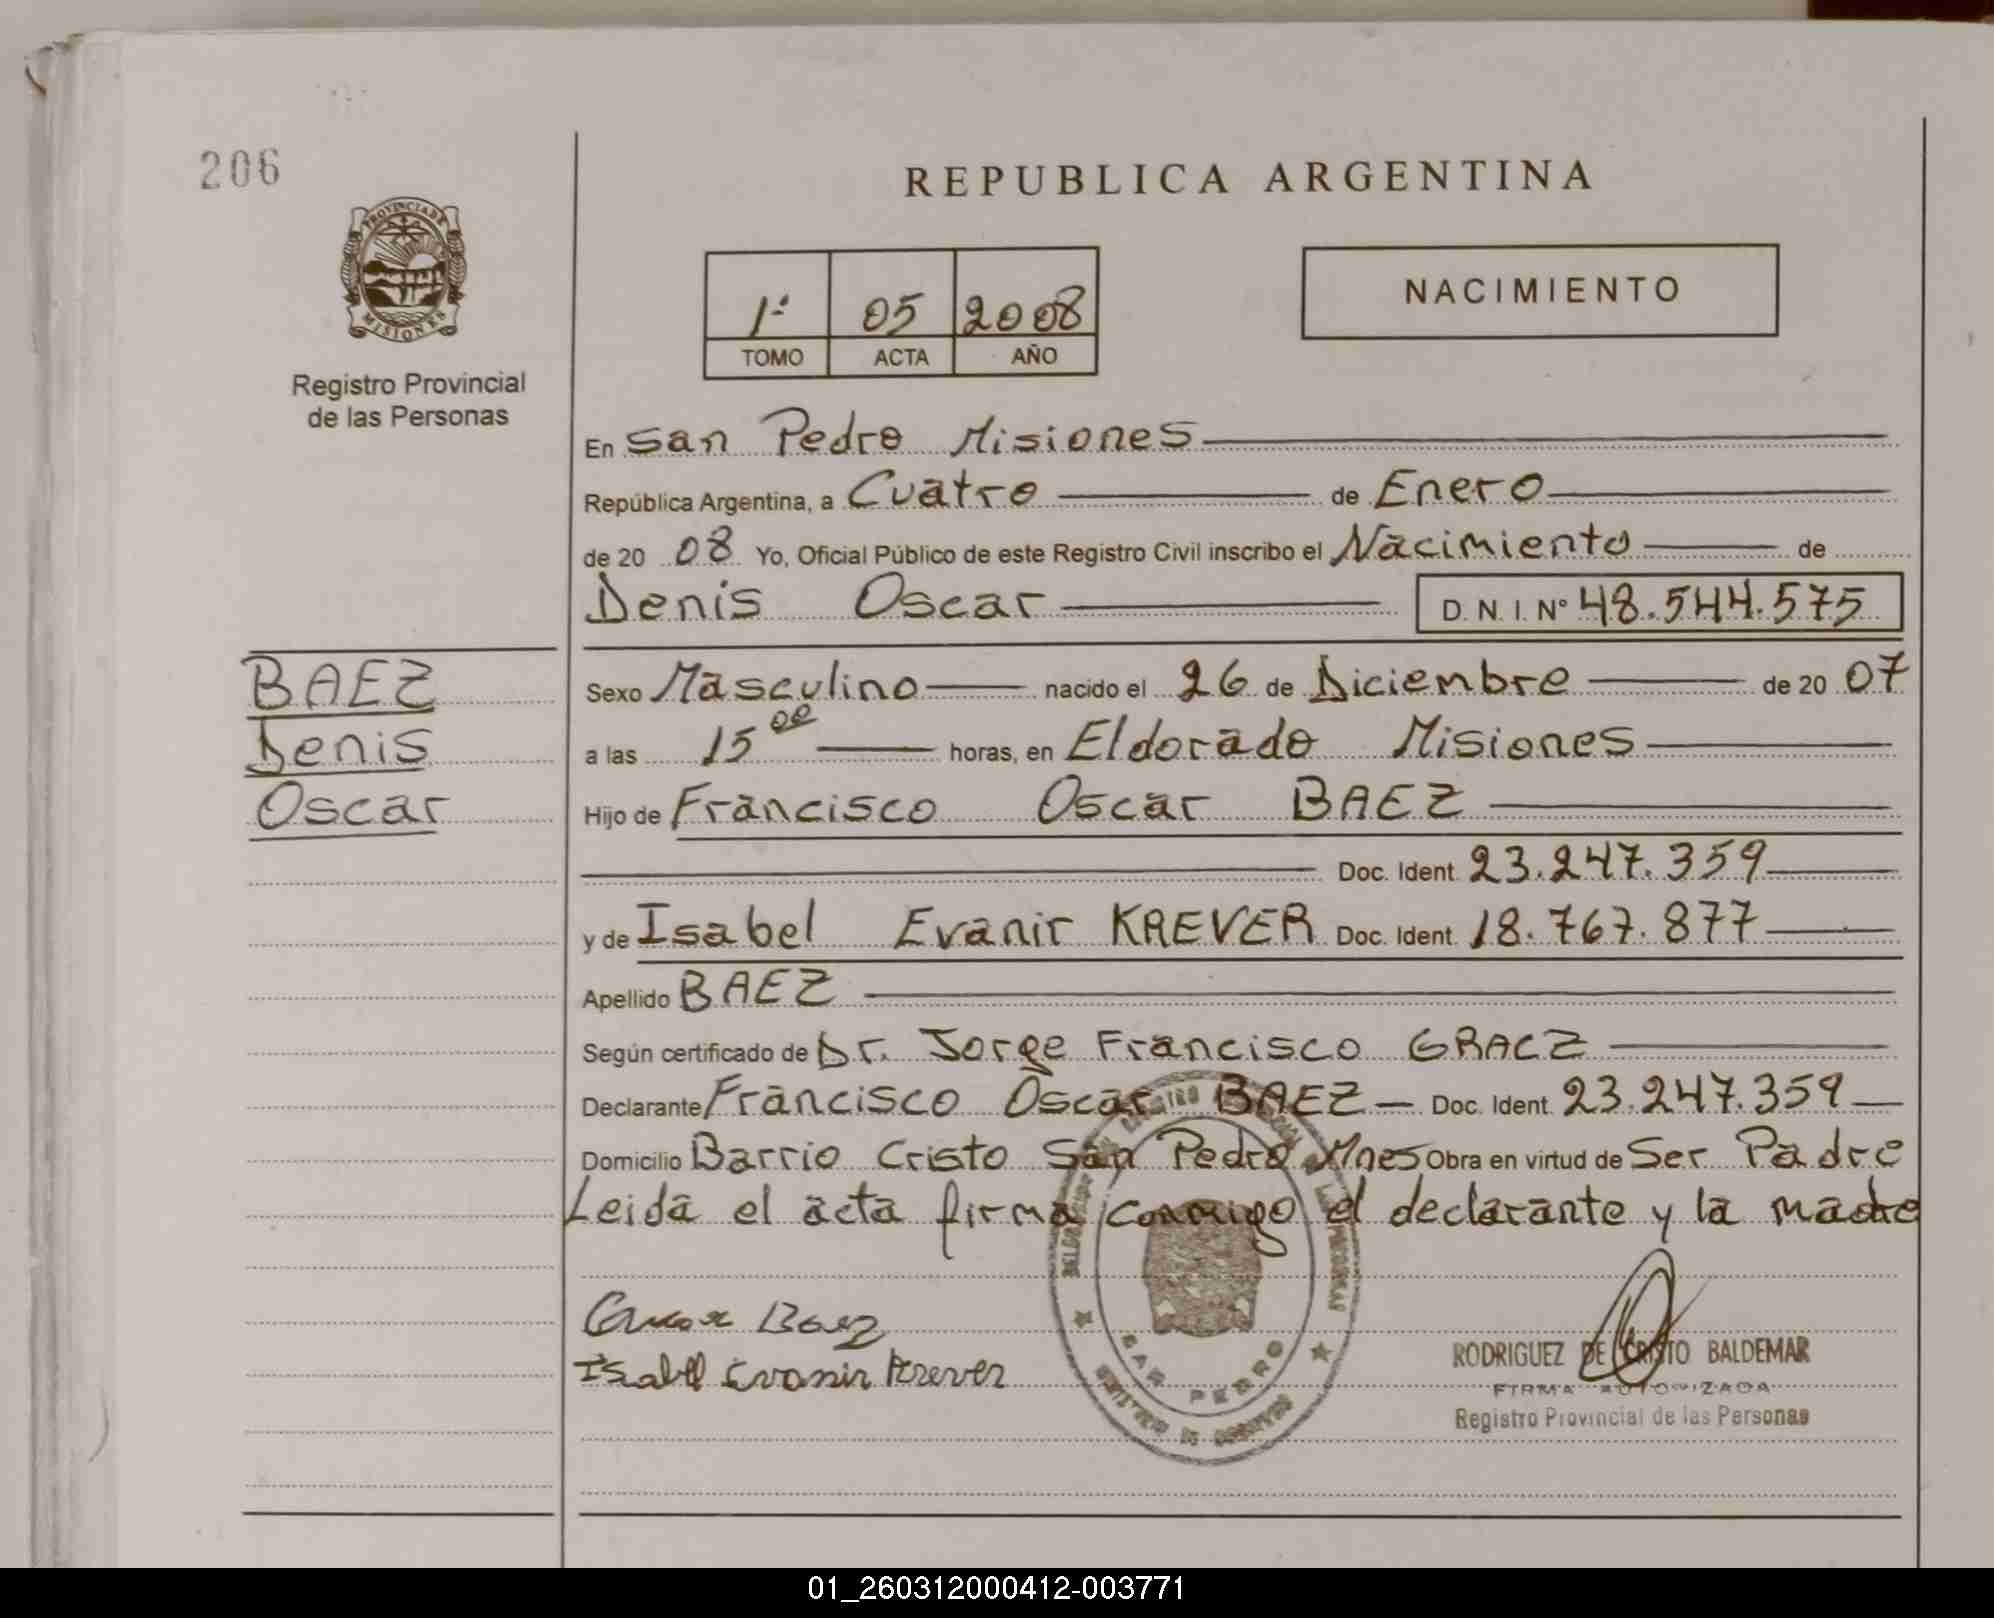 206
REPUBLICA ARGENTINA
PROVINCIA DE
MISIONES
Registro Provincial
de las Personas
1ª 05 2008
TOMO ACTA AÑO
NACIMIENTO
En San Pedro Misiones
República Argentina, a Cuatro de Enero
de 20 08 Yo, Oficial Público de este Registro Civil inscribo el Nacimiento de
Denis Oscar D. N. I. Nº 48.544.575
BAEZ
Denis
Oscar
Sexo Masculino nacido el 26 de Diciembre de 20 07
a las 15 00 horas, en Eldorado Misiones
Hijo de Francisco Oscar BAEZ
Doc. Ident. 23.247.359
y de Isabel Evanir KREVER Doc. Ident. 18.767.877
Apellido BAEZ
Según certificado de Dr. Jorge Francisco GRACZ
Declarante Francisco Oscar BAEZ Doc. Ident. 23.247.359
Domicilio Barrio Cristo San Pedro Mnes Obra en virtud de Ser Padre
Leida el acta firma conmigo el declarante y la madre
Baez
Isabel Evanir Krever
SAN PEDRO
RODRIGUEZ DE CRISTO BALDEMAR
FIRMA AUTORIZADA
Registro Provincial de las Personas
01_260312000412-003771